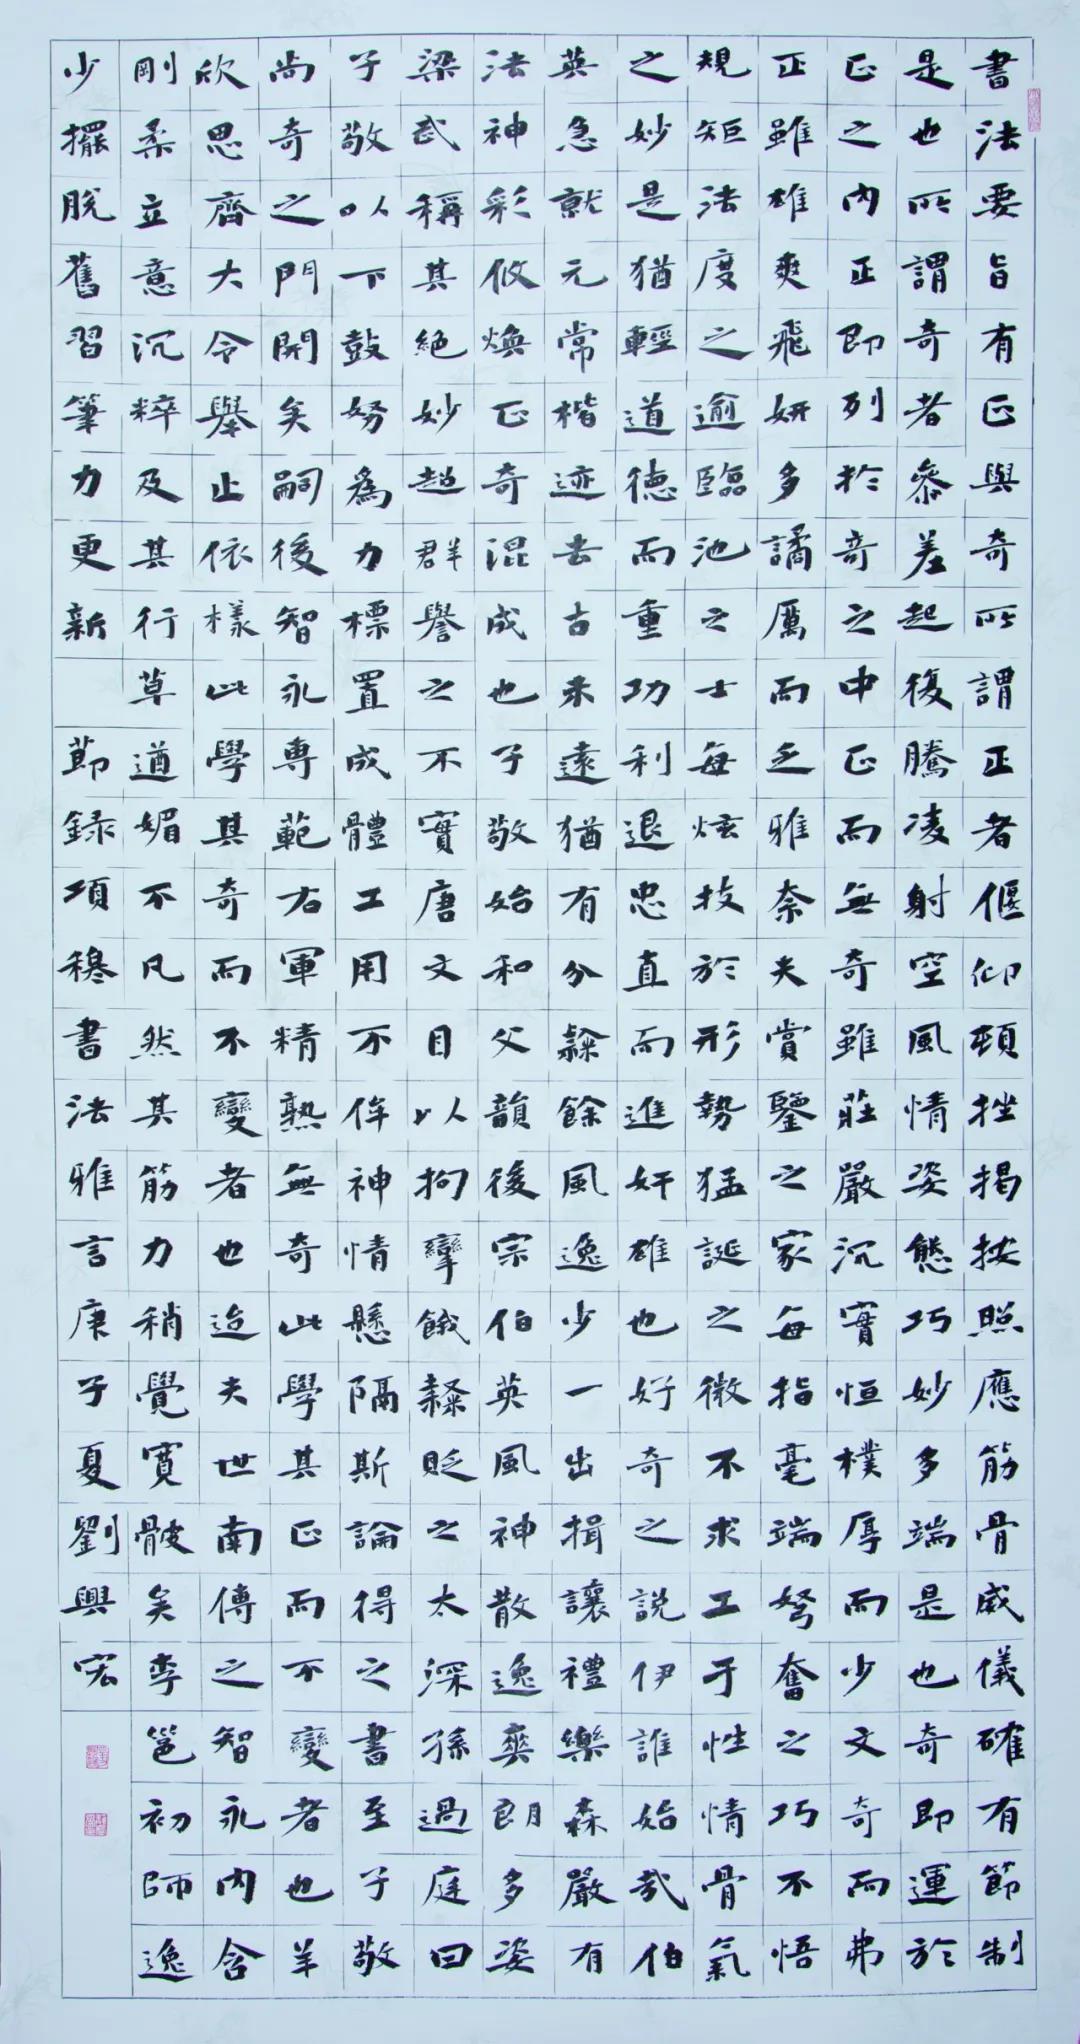 書法要旨有正與奇所謂正者偃仰頓挫揭按照應筋骨威儀確有節制
是也所謂奇者參差起復騰凌射空風情姿態巧妙多端是也奇即運於
正之內正即列於奇之中正而無奇雖莊嚴沉實恒樸厚而少文奇而弗
正雖雄爽飛妍多譎厲而乏雅奈夫賞鑒之家每指毫端努奮之巧不悟
規矩法度之逾臨池之士每炫技於形勢猛誕之微不求工于性情骨氣
之妙是猶輕道德而重功利退忠直而進奸雄也好奇之說伊誰始哉伯
英急就元常楷迹去古未遠猶有分隸餘風逸少一出揖讓禮樂森嚴有
法神彩攸煥正奇混成也子敬始和父韻後宗伯英風神散逸爽朗多姿
梁武稱其絕妙超群譽之不實唐文目以拘攣餓隸貶之太深孫過庭曰
子敬以下鼓努為力標置成體工用不侔神情懸隔斯論得之書至子敬
尚奇之門開矣嗣後智永專範右軍精熟無奇此學其正而不變者也羊
欣思齊大令舉止依樣此學其奇而不變者也迨夫世南傳之智永內含
剛柔立意沉粹及其行草遒媚不凡然其筋力稍覺寬骳矣李邕初師逸
少擺脫舊習筆力更新 節錄項穆書法雅言庚子夏劉興宏